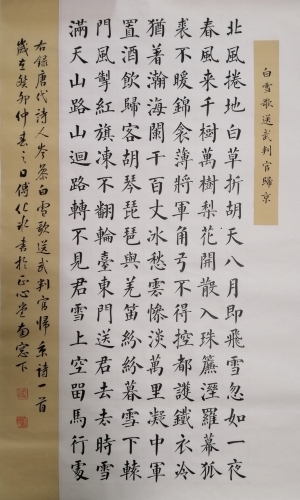 白雪歌送武判官歸京
北風捲地白草折胡天八月即飛雪忽如一夜
春風來千樹萬樹梨花開散入珠簾溼羅幕狐
裘不暖錦衾薄將軍角弓不得控都護鐵衣冷
猶着瀚海闌干百丈冰愁雲慘淡萬里凝中軍
置酒飲歸客胡琴琵琶與羌笛紛紛暮雪下轅
門風掣紅旗凍不翻輪臺東門送君去去時雪
滿天山路山迴路轉不見君雪上空留馬行處
右錄唐代詩人岑參白雪歌送武判官歸京詩一首
歲在癸卯仲春之日傅化書於正心堂南窓下